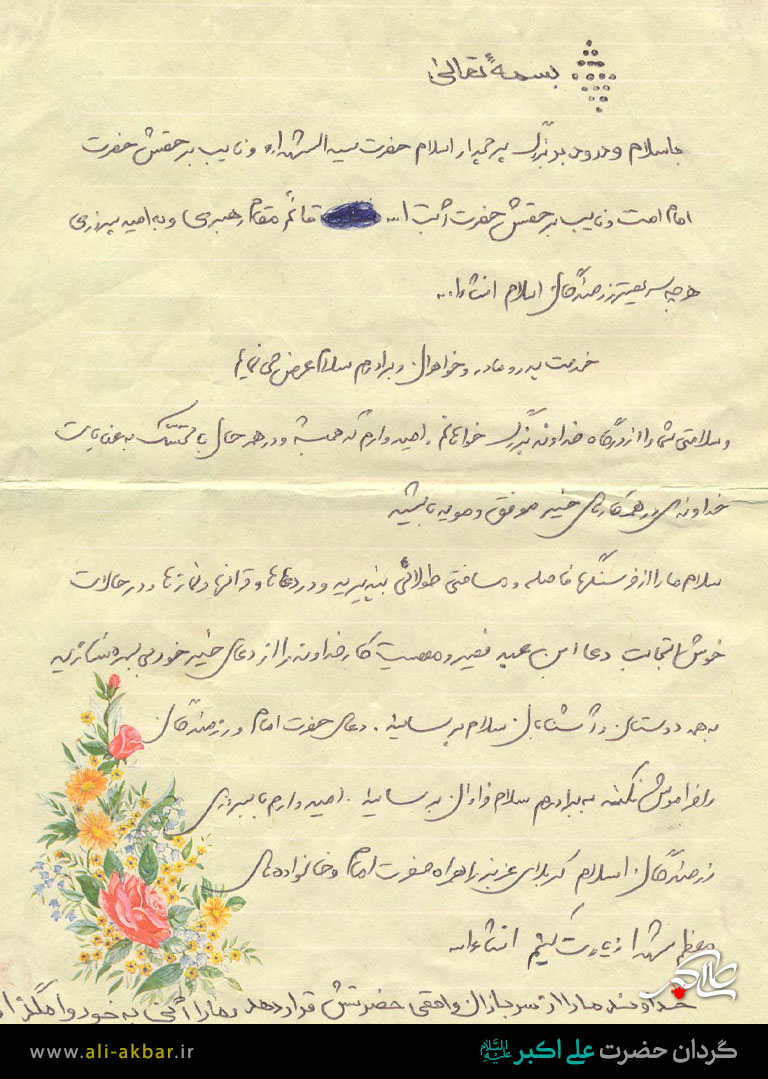 بسمه تعالی
باسلام و درود بر بزرگ پرچمدار اسلام حضرت سید الشهداء و نایب بر حقش حضرت
امام امت و نایب بر حقش حضرت آیت ا... قائم مقام رهبری و به امید پیروزی
هرچه سریعتر رزمندگان اسلام انشاءا...
خدمت پدر و مادر و خواهران و برادرم سلام عرض می نمایم
و سلامتی شما را از درگاه خداوند بزرگ خواهانم . امیدوارم که همیشه و در هر حال با تمسک به عنایات
خداوندی در همه کارهای خیر موفق و موید باشید
سلام ما را از فرسنگها فاصله و مسافتی طولانی بپذیرید و در دعاها و قرآنها و نمازها و در حالات
خوش دعا این عبد فقیر و معصیت کار خداوند را از دعای خیر خود بی بهره نسازید
به همه دوستان و آشنایان سلام برسانید . دعای حضرت امام و رزمندگان
را فراموش نکنید به برادرم سلام فراوان برسانید . امیدوارم با پیروزی
رزمندگان اسلام کربلای عزیز را همراه حضرت امام و خانواده های
معظم شهدا زیارت کنیم انشاءاله
خداوند ما را از سربازان واقعی حضرتش قرار دهد و ما را آنی به خود وا مگذار
علی اکبر
www.ali-akbar.ir
گردان حضرت علی اکبر علیه السلام